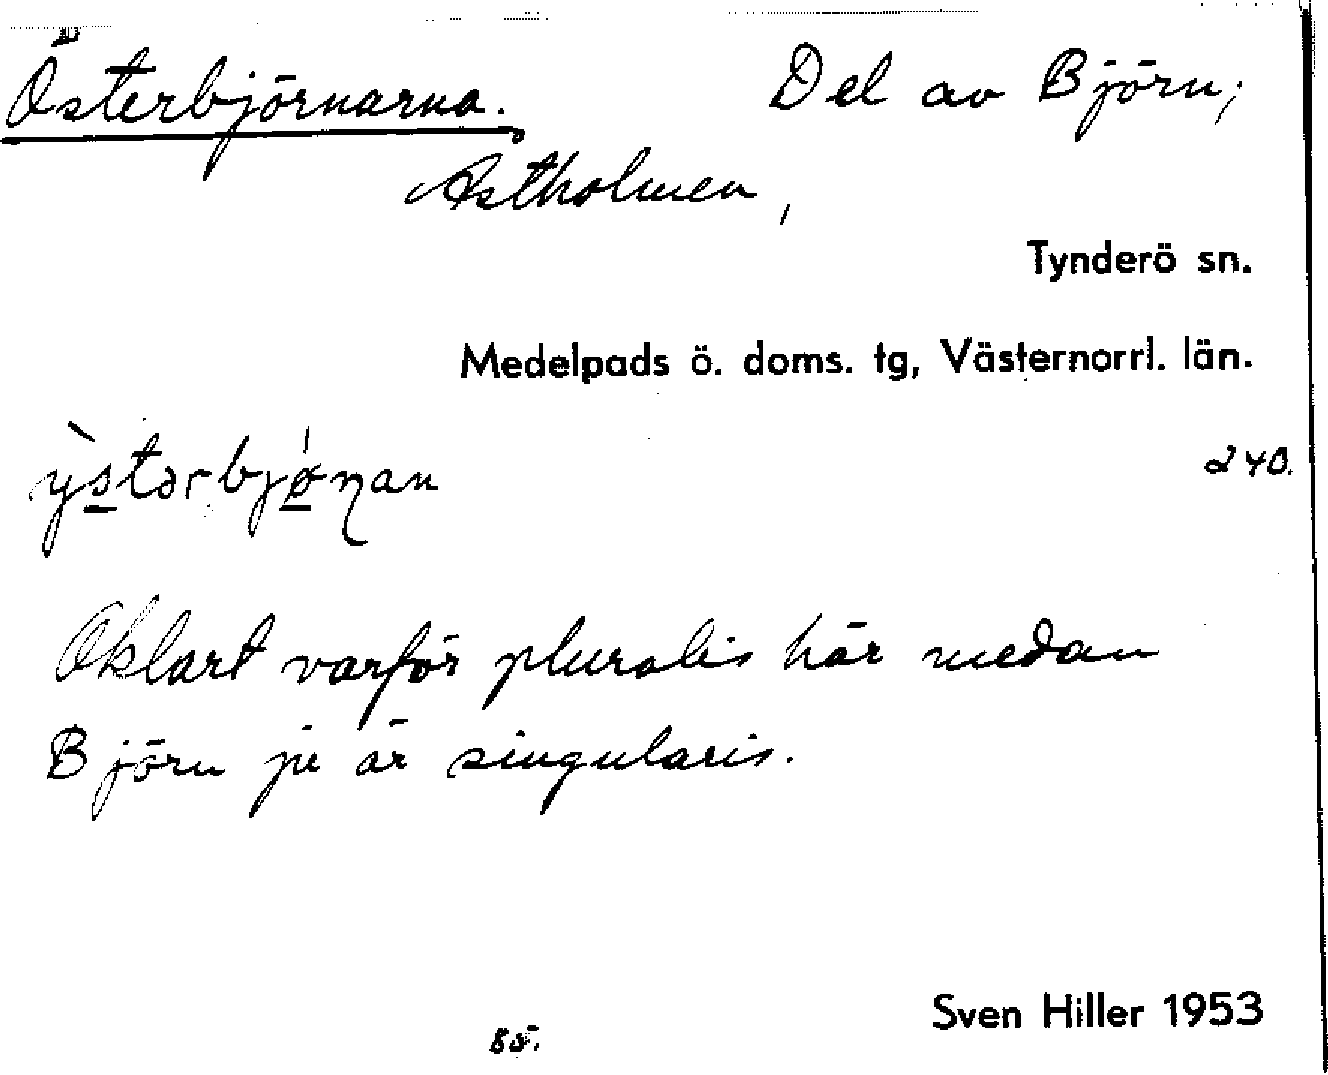 Österbjörnarna. Del av Björn;
Åstholmen,
Tynderö sn.
Medelpads ö. doms. tg, Västernorrl. län.
ỳstərbjǿṇan 240.
Oklart varför pluralis här medan
Björn ju är singularis.
Sven Hiller 1953
85.